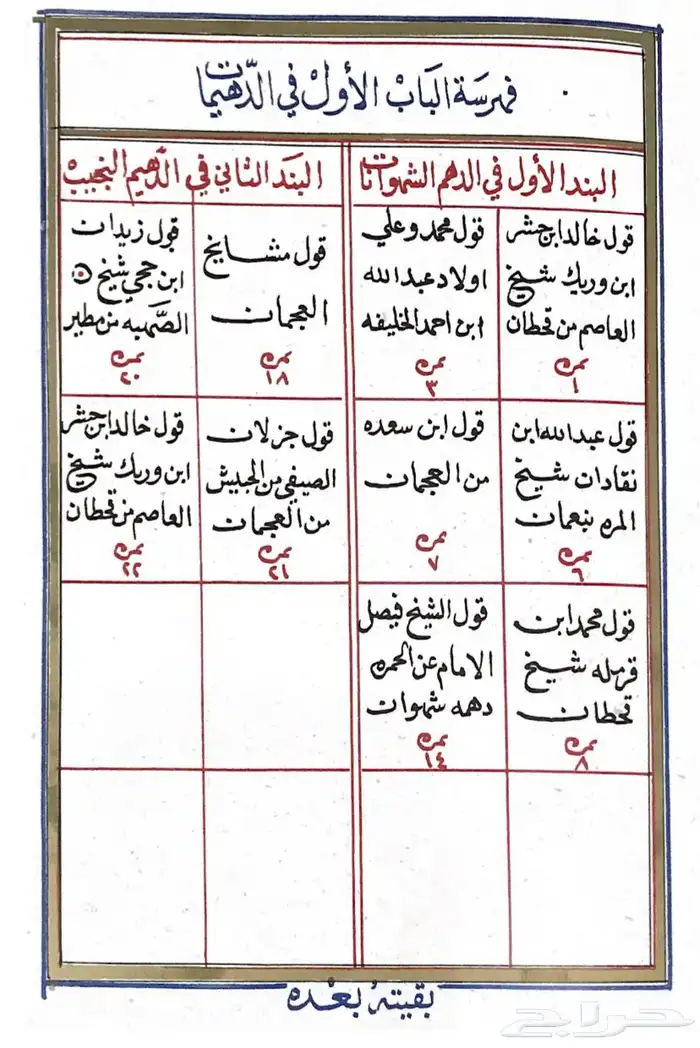 فهرسة الباب الأول في الدهيمات
البند الأول في الدهم الشهوانات
قول خالد ابن حشر
ابن وريك شيخ
العاصم من قحطان
نمره
١
قول محمد وعلي
اولاد عبدالله
ابن احمد الخليفه
نمره
٣
قول عبدالله ابن
نقادان شيخ
المره بنعمان
نمره
٦
قول ابن سعده
من العجمان
نمره
٧
قول محمد ابن
قرمله شيخ
قحطان
نمره
٨
قول الشيخ فيصل
الامام عن الحمره
دهمه شهوان
نمره
١٤
البند الثاني في الدهيم النجيب
قول مشايخ
العجمان
نمره
١٨
قول زيدان
ابن حجي شيخ
الصهبه من مطير
نمره
٢٠
قول جزلان
الصيفي من الجيش
من العجمان
نمره
٢١
قول خالد ابن حشر
ابن وريك شيخ
العاصم من قحطان
نمره
٢٢
بقيته بعده
حراج